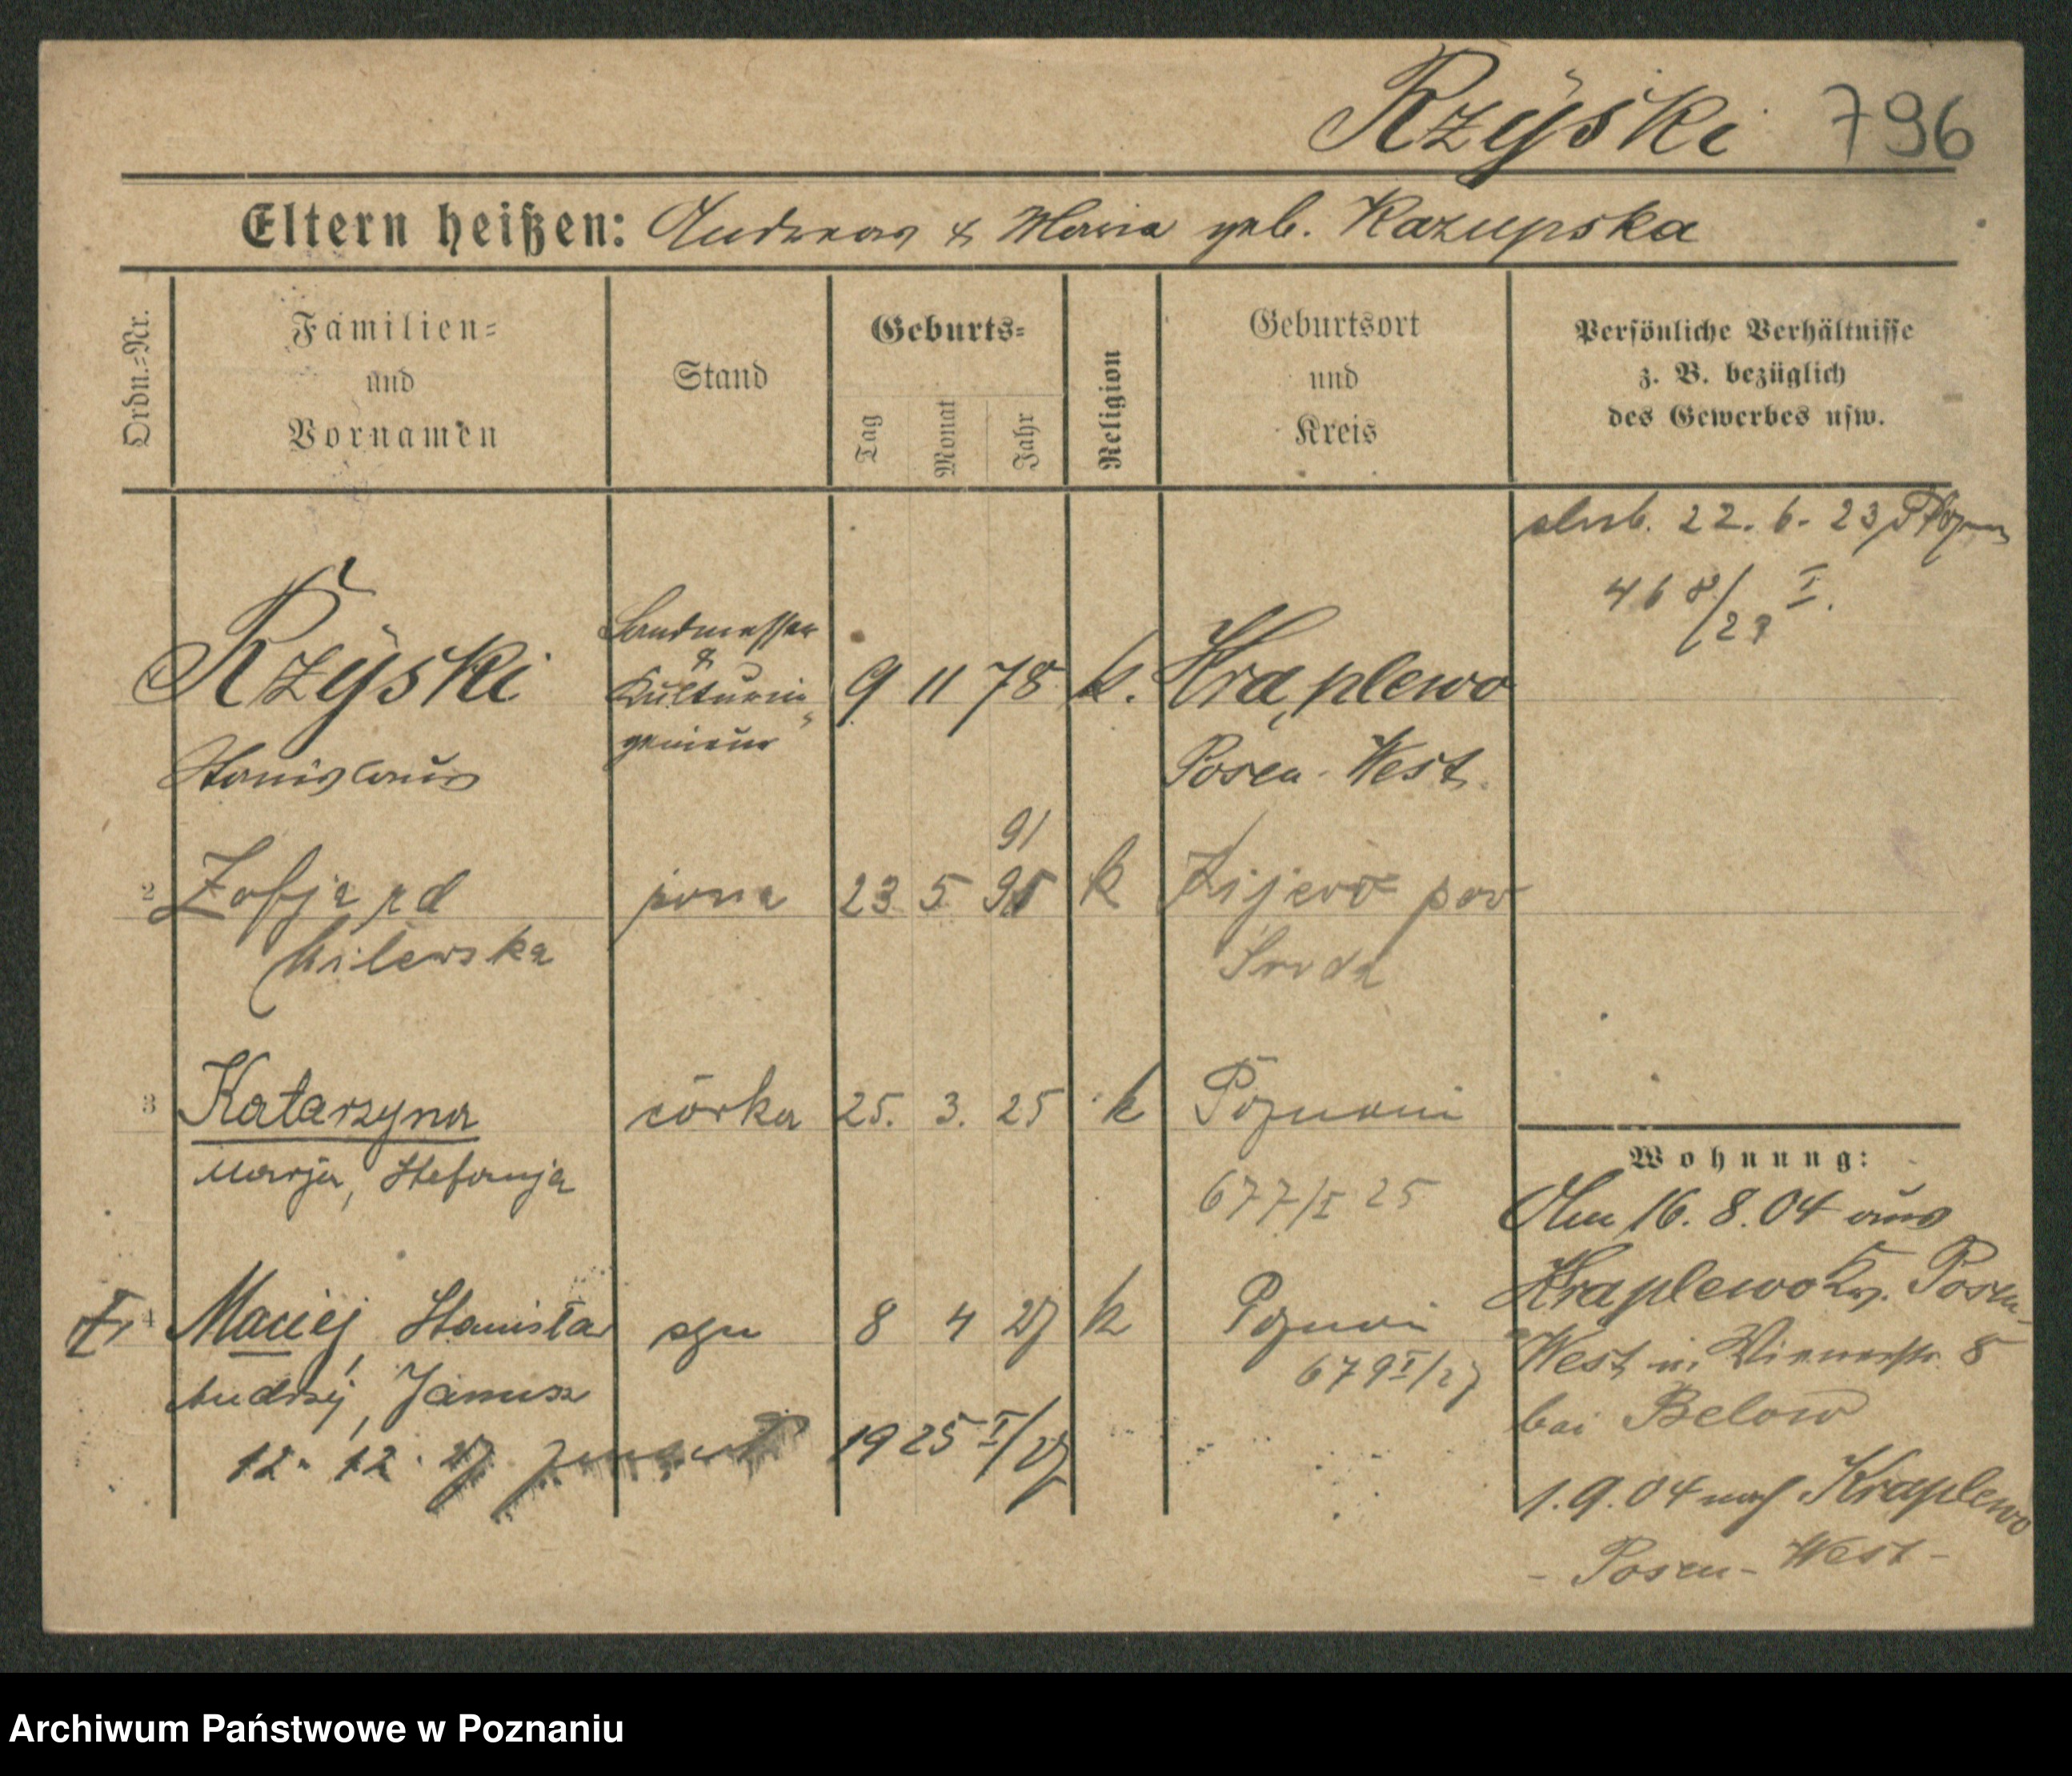 Rzÿski 796
Eltern heißen: Andreas & Maria geb. Kazupska
Ordn.=Nr.
Familien=
und
Vornamen
Stand
Geburts=
Tag
Monat
Jahr
Religion
Geburtsort
und
Kreis
Persönliche Verhältnisse
z. B. bezüglich
des Gewerbes usw.
22. 6. 23
468/23 I.
Rzÿski
Stanislaus
Landmesser
&
Kulturin=
genieur
9 11 78 k.
Krąplewo
Posen-West.
2 Zofja zd
Milewska
żona
23 5 91 k
pow
Środa
3 Katarzyna
Marja, Stefanja
córka
25. 3. 25 k
Poznań
677/I 25
4 Maciej, Stanisław
Andrzej, Janusz
syn
8 4 27 k
Poznań
679 I/27
12. 12. 27
1925 I/27
Wohnung:
Am 16. 8. 04 aus
Kraplewo Kr. Posen-
West n. Wienerstr. 8
bei Below
1. 9. 04 nach Kraplewo
- Posen-West -
Archiwum Państwowe w Poznaniu